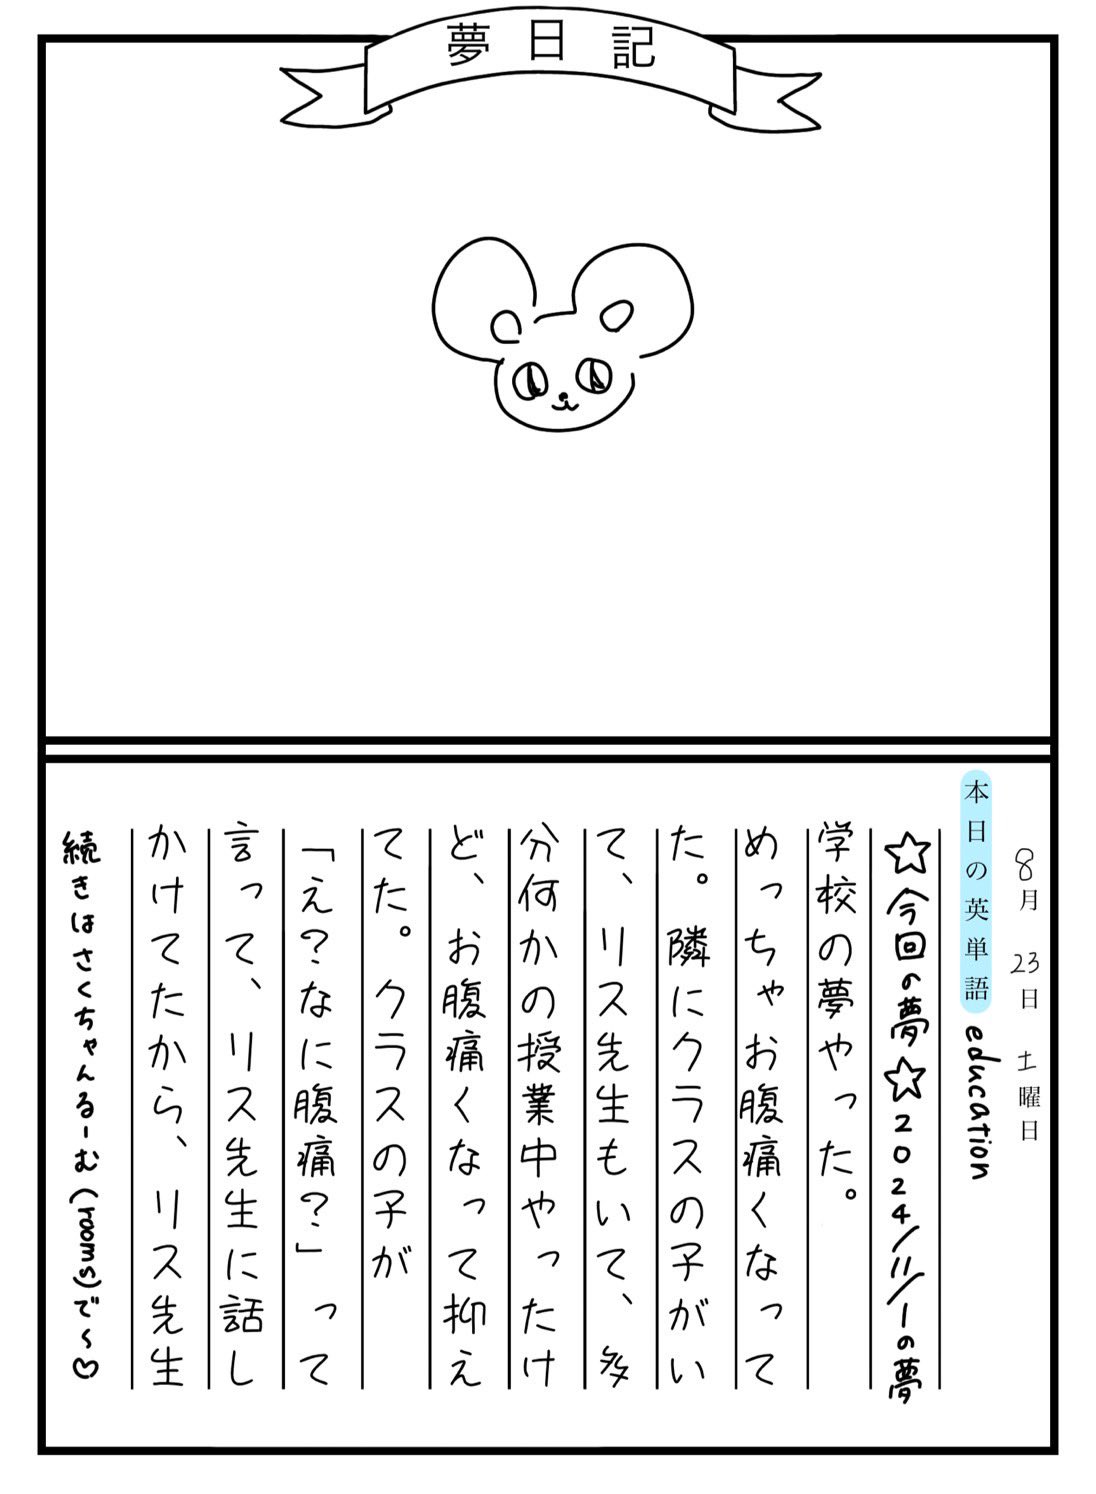 夢日記
8月 23日 土曜日
本日の英単語 education
☆今回の夢☆2024/11/1の夢
学校の夢やった。
めっちゃお腹痛くなって
た。隣にクラスの子がい
て、リス先生もいて、多
分何かの授業中やったけ
ど、お腹痛くなって抑え
てた。クラスの子が
「え？なに腹痛？」って
言って、リス先生に話し
かけてたから、リス先生
続きはさくちゃんるーむ(rooms)で〜♡